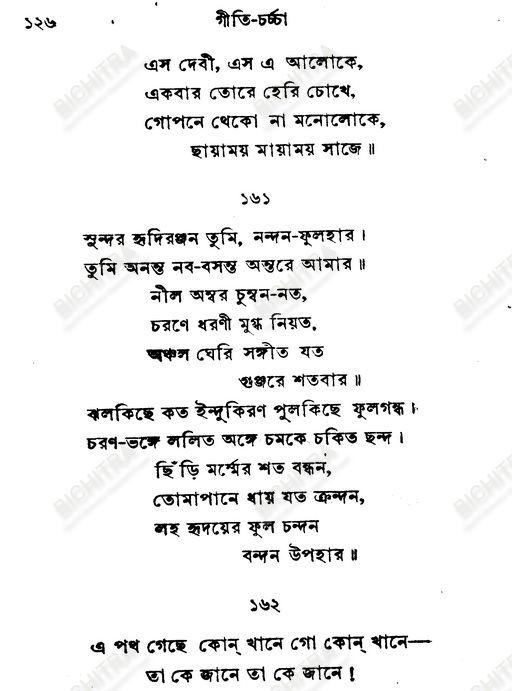 ১২৬
গীতি-চর্চ্চা
এস দেবী, এস এ আলোকে,
একবার তোরে হেরি চোখে,
গোপনে থেকো না মনোলোকে,
ছায়াময় মায়াময় সাজে॥
১৬১
সুন্দর হৃদিরঞ্জন তুমি, নন্দন-ফুলহার।
তুমি অনন্ত নব-বসন্ত অন্তরে আমার॥
নীল অম্বর চুম্বন-নত,
চরণে ধরণী মুগ্ধ নিয়ত,
অঞ্চল ঘেরি সঙ্গীত যত
গুঞ্জরে শতবার॥
ঝলকিছে কত ইন্দুকিরণ পুলকিছে ফুলগন্ধ।
চরণ-ভঙ্গে ললিত অঙ্গে চমকে চকিত ছন্দ।
ছিঁড়ি মর্ম্মের শত বন্ধন,
তোমাপানে ধায় যত ক্রন্দন,
লহ হৃদয়ের ফুল চন্দন
বন্দন উপহার॥
১৬২
এ পথ গেছে কোন্ খানে গো কোন্ খানে—
তা কে জানে তা কে জানে!
BICHITRA